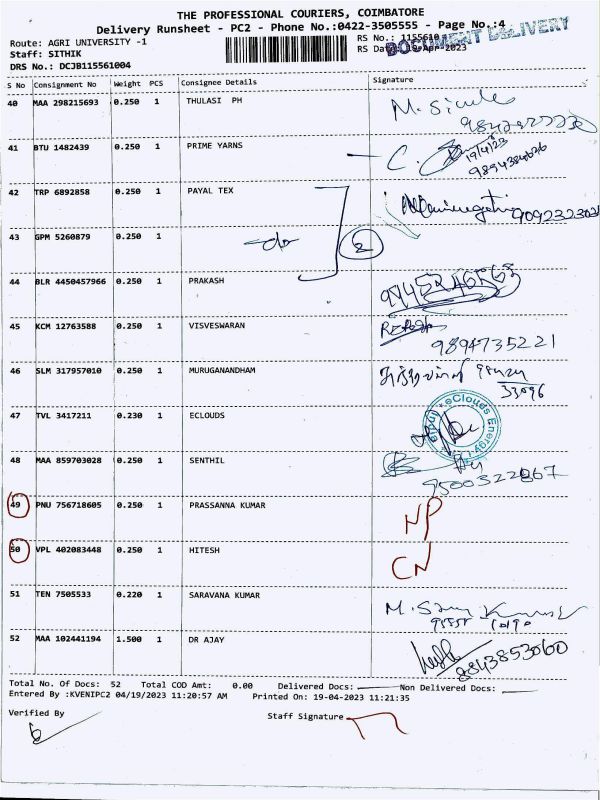 THE PROFESSIONAL COURIERS, COIMBATORE
Delivery Runsheet - PC2 - Phone No.:0422-3505555 - Page No.:4
Route: AGRI UNIVERSITY -1
RS No.: 1155610
Staff: SITHIK
RS Da 19-Apr-2023
DOCUMENT DELIVERY
DRS No.: DCJB115561004
S No Consignment No Weight PCS Consignee Details Signature
40 MAA 298215693 0.250 1 THULASI PH
41 BTU 1482439 0.250 1 PRIME YARNS C. 19/4/23
9894384636
42 TRP 6892858 0.250 1 PAYAL TEX
43 GPM 5260879 0.250 1 -do- 2
44 BLR 4450457966 0.250 1 PRAKASH
45 KCM 12763588 0.250 1 VISVESWARAN
9894735221
46 SLM 317957010 0.250 1 MURUGANANDHAM
33096
47 TVL 3417211 0.230 1 ECLOUDS eClouds Energy
48 MAA 859703028 0.250 1 SENTHIL
9500322867
49 PNU 756718605 0.250 1 PRASSANNA KUMAR NP
50 VPL 402083448 0.250 1 HITESH CN
51 TEN 7505533 0.220 1 SARAVANA KUMAR
52 MAA 102441194 1.500 1 DR AJAY
8843853060
Total No. Of Docs: 52 Total COD Amt: 0.00 Delivered Docs: Non Delivered Docs:
Entered By :KVENIPC2 04/19/2023 11:20:57 AM Printed On: 19-04-2023 11:21:35
Verified By
Staff Signature